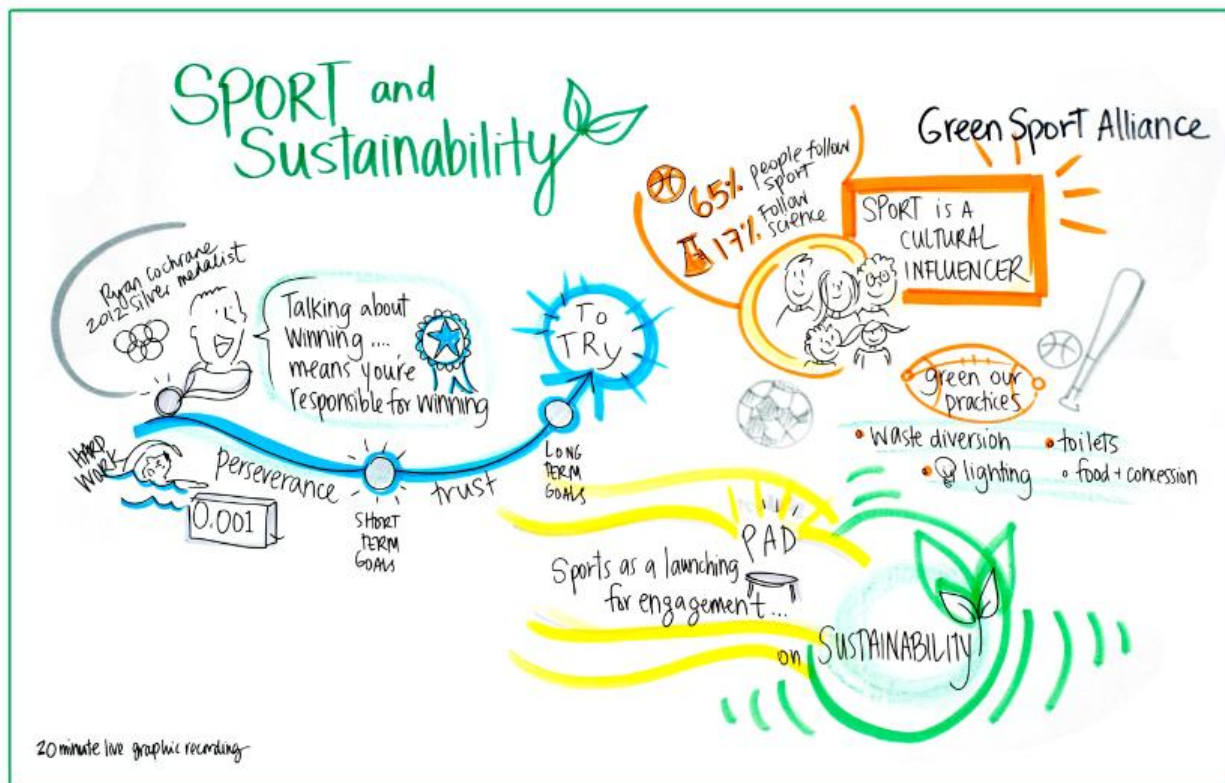 SPORT and
Sustainability
Green Sport Alliance
65% people follow
sport
17% Follow
science
SPORT is A
CULTURAL
INFLUENCER
Ryan Cochrane
2012 Silver medalist
Talking about
winning....
means you're
responsible for winning
To
TRy
HARD
WORK
perseverance
0.001
SHORT
TERM
GOALS
trust
LONG
TERM
GOALS
green our
practices
• waste diversion
• toilets
• lighting
• food + concession
PAD
Sports as a launching
for engagement...
on SUSTAINABILITY
20 minute live graphic recording